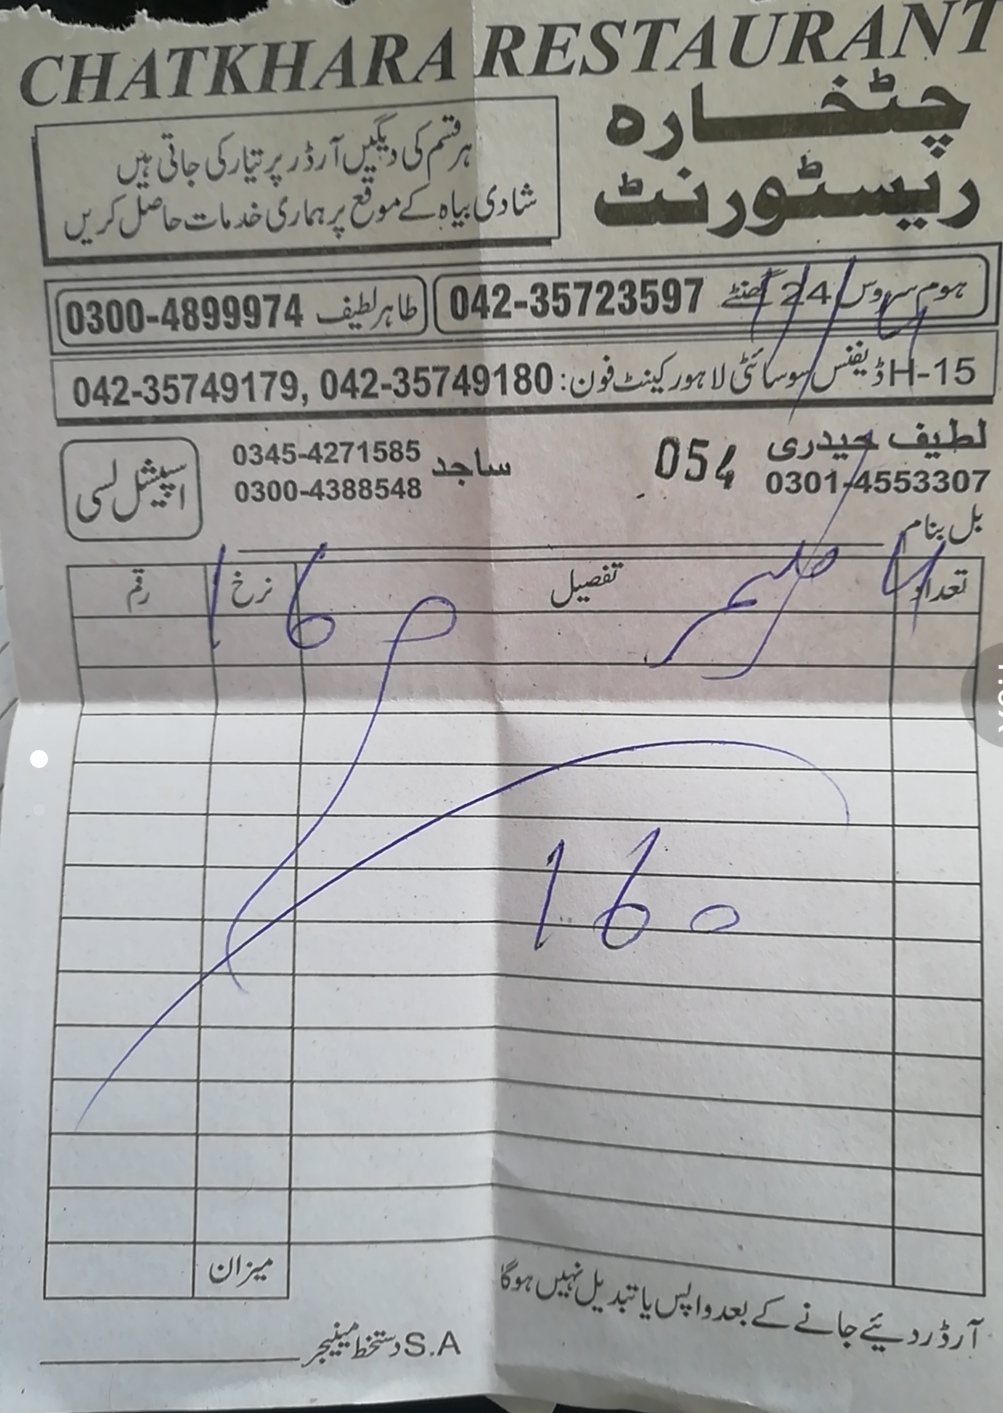 CHATKHARA RESTAURANT
چٹخارہ
ریسٹورنٹ
ہر قسم کی دیگیں آرڈر پر تیار کی جاتی ہیں
شادی بیاہ کے موقع پر ہماری خدمات حاصل کریں
ہوم سروس 24 گھنٹے 042-35723597
طاہر لطیف 0300-4899974
H-15 ڈیفنس سوسائٹی لاہور کینٹ فون: 042-35749179, 042-35749180
لطیف حیدری
0301-4553307
054
ساجد 0345-4271585
0300-4388548
اسپیشل لسی
بل بنام
تعداد تفصیل نرخ رقم
حلیم 16
160
میزان
آرڈر دیئے جانے کے بعد واپس یا تبدیل نہیں ہوگا
S.A دستخط مینیجر